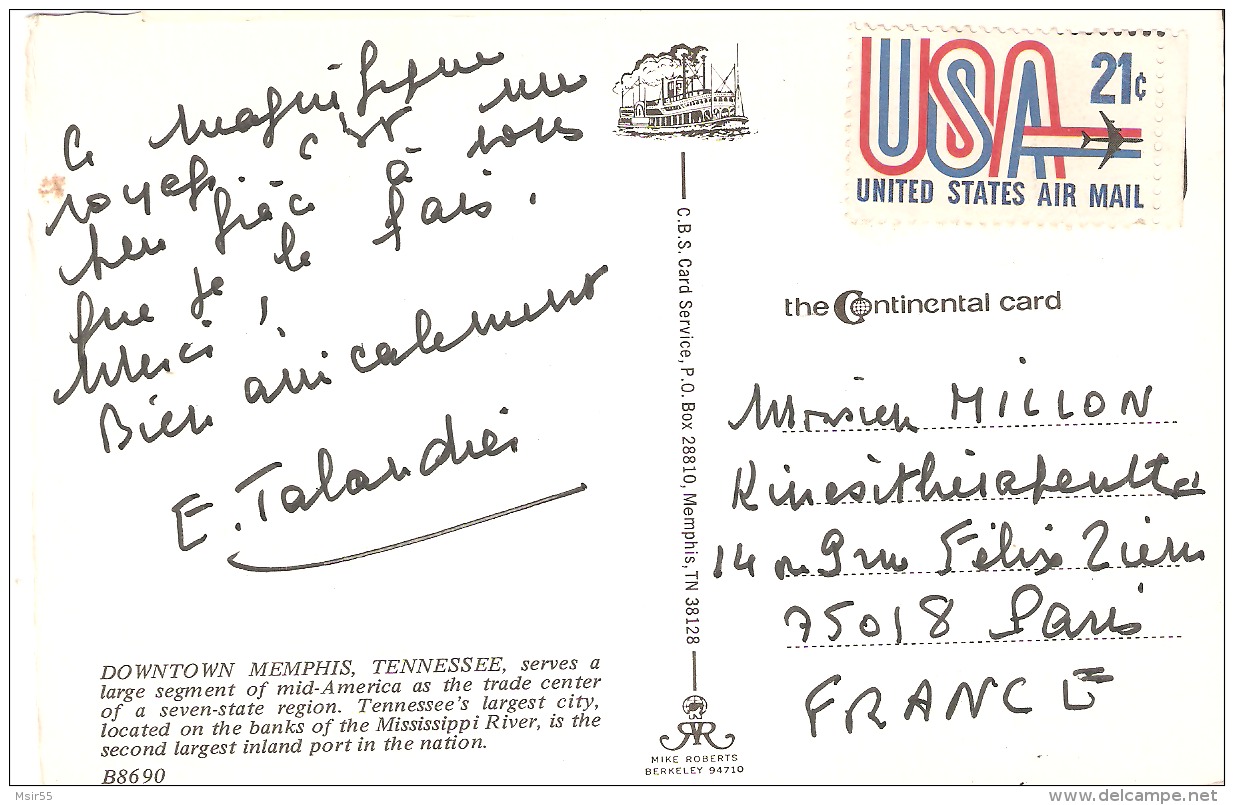 Ce magnifique
voyage. C'est un
peu grâce à vous
que je le fais.
Merci !
Bien amicalement
E. Talandier
DOWNTOWN MEMPHIS, TENNESSEE, serves a
large segment of mid-America as the trade center
of a seven-state region. Tennessee's largest city,
located on the banks of the Mississippi River, is the
second largest inland port in the nation.
B8690
C.B.S. Card Service, P.O. Box 28810, Memphis, TN 38128
MIKE ROBERTS
BERKELEY 94710
USA 21¢
UNITED STATES AIR MAIL
the Continental card
Monsieur MILLON
Kinésithérapeute
14 ou 9 rue Félix Ziem
75018 Paris
FRANCE
Msir55
www.delcampe.net